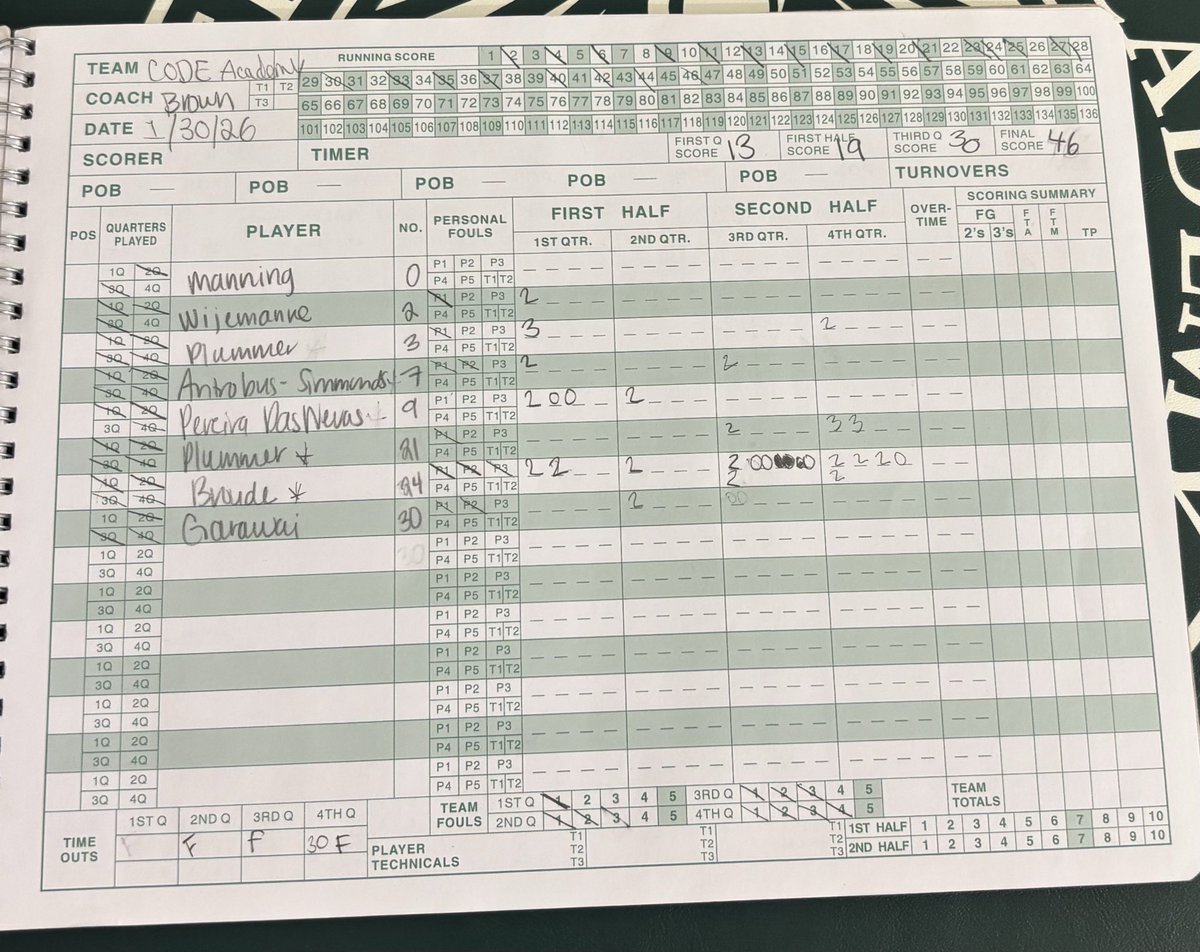 TEAM CODE Academy
COACH Brown T1 T2 T3
DATE 1/30/26
SCORER
TIMER
RUNNING SCORE
1 2 3 4 5 6 7 8 9 10 11 12 13 14 15 16 17 18 19 20 21 22 23 24 25 26 27 28
29 30 31 32 33 34 35 36 37 38 39 40 41 42 43 44 45 46 47 48 49 50 51 52 53 54 55 56 57 58 59 60 61 62 63 64
65 66 67 68 69 70 71 72 73 74 75 76 77 78 79 80 81 82 83 84 85 86 87 88 89 90 91 92 93 94 95 96 97 98 99 100
101 102 103 104 105 106 107 108 109 110 111 112 113 114 115 116 117 118 119 120 121 122 123 124 125 126 127 128 129 130 131 132 133 134 135 136
FIRST Q SCORE 13 FIRST HALF SCORE 19 THIRD Q SCORE 30 FINAL SCORE 46
POB — POB — POB — POB — POB — TURNOVERS
POS QUARTERS PLAYED PLAYER NO. PERSONAL FOULS FIRST HALF SECOND HALF OVER-TIME SCORING SUMMARY
1ST QTR. 2ND QTR. 3RD QTR. 4TH QTR. FG 2's 3's FTA FTM TP
1Q 2Q 3Q 4Q Manning 0 P1 P2 P3 P4 P5 T1 T2
1Q 2Q 3Q 4Q Wijemanne 2 P1 P2 P3 P4 P5 T1 T2 2
1Q 2Q 3Q 4Q Plummer 3 P1 P2 P3 P4 P5 T1 T2 3 2
1Q 2Q 3Q 4Q Antrobus-Simmonds 7 P1 P2 P3 P4 P5 T1 T2 2 2
1Q 2Q 3Q 4Q Pereira DasNevas 9 P1 P2 P3 P4 P5 T1 T2 2 0 0 2
1Q 2Q 3Q 4Q Plummer 21 P1 P2 P3 P4 P5 T1 T2 2 3 3
1Q 2Q 3Q 4Q Braude 24 P1 P2 P3 P4 P5 T1 T2 2 2 2 2 0 0 2 2 2 1 0 2
1Q 2Q 3Q 4Q Garawai 30 P1 P2 P3 P4 P5 T1 T2 2 0 0
1Q 2Q 3Q 4Q 30 P1 P2 P3 P4 P5 T1 T2
1Q 2Q 3Q 4Q P1 P2 P3 P4 P5 T1 T2
1Q 2Q 3Q 4Q P1 P2 P3 P4 P5 T1 T2
1Q 2Q 3Q 4Q P1 P2 P3 P4 P5 T1 T2
1Q 2Q 3Q 4Q P1 P2 P3 P4 P5 T1 T2
1Q 2Q 3Q 4Q P1 P2 P3 P4 P5 T1 T2
1Q 2Q 3Q 4Q P1 P2 P3 P4 P5 T1 T2
TIME OUTS 1ST Q 2ND Q 3RD Q 4TH Q
F F F 30 F
TEAM FOULS 1ST Q 1 2 3 4 5 3RD Q 1 2 3 4 5
2ND Q 1 2 3 4 5 4TH Q 1 2 3 4 5
TEAM TOTALS
PLAYER TECHNICALS T1 T2 T3 T1 T2 T3 T1 T2 T3
1ST HALF 1 2 3 4 5 6 7 8 9 10
2ND HALF 1 2 3 4 5 6 7 8 9 10